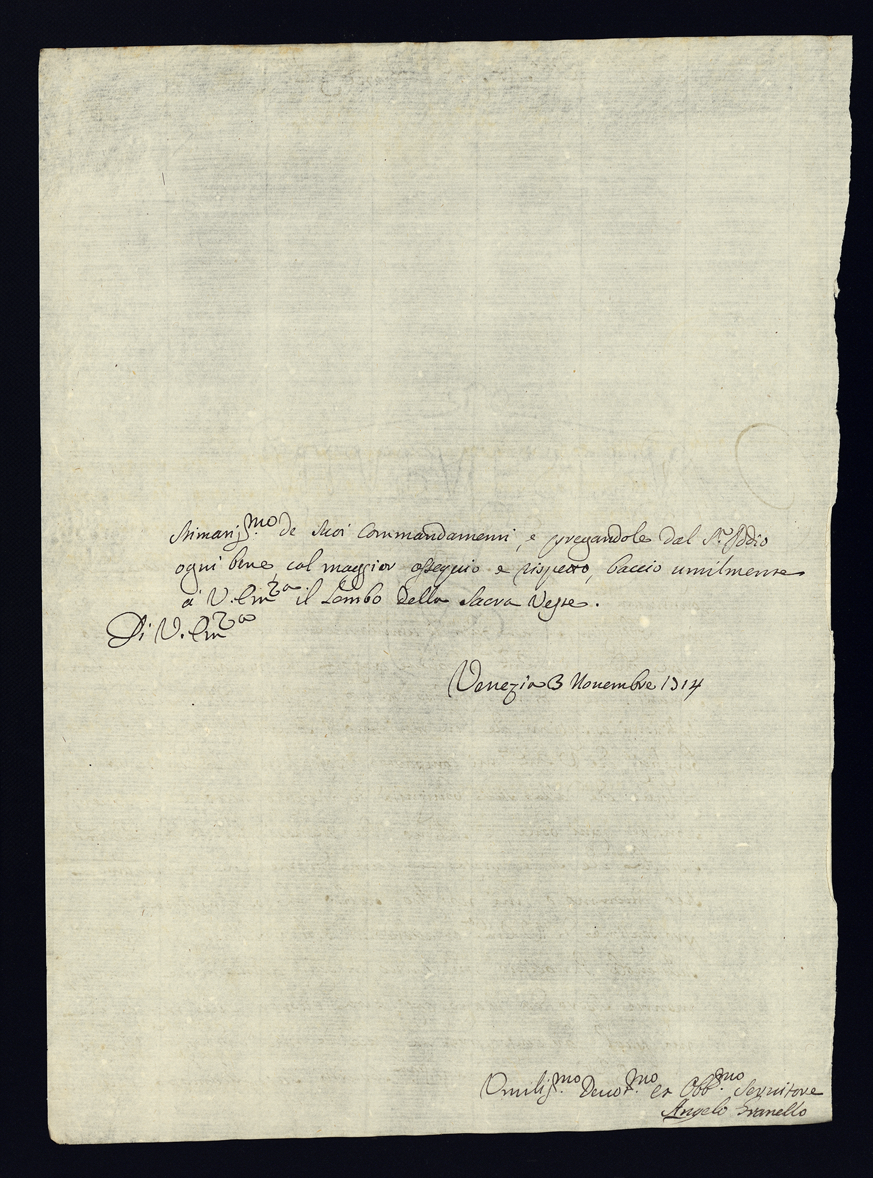 stimatiss.mo de suoi Commandamenti, e pregandole dal S.r Iddio
ogni bene col maggior ossequio e rispetto, baccio umilmente
a V. Em.za il Lembo della Sacra Veste.
Di V. Em.za
Venezia 3 Novembre 1714
Umiliss.mo Devot.mo et Obb.mo Servitore
Angelo